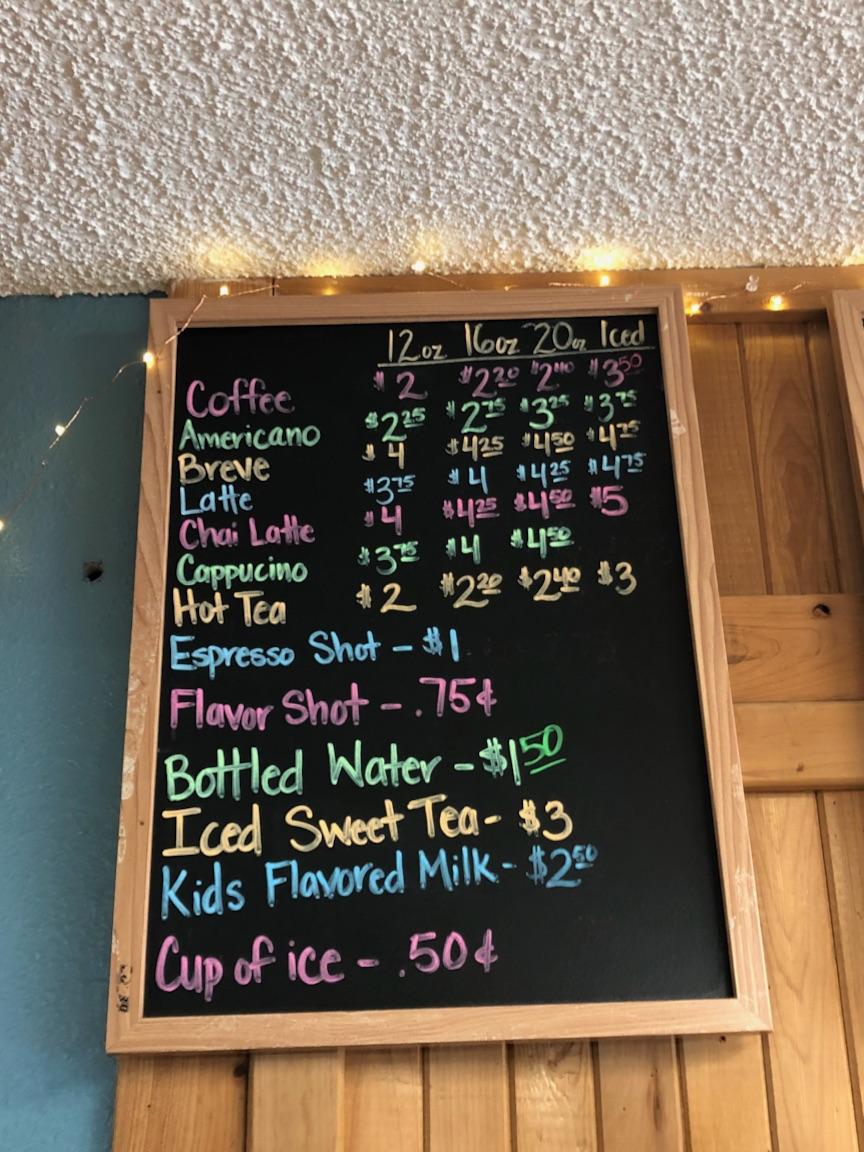 12oz 16oz 20oz Iced
Coffee $2 $2.20 $2.40 $3.50
Americano $2.25 $2.75 $3.25 $3.75
Breve $4 $4.25 $4.50 $4.75
Latte $3.75 $4 $4.25 $4.75
Chai Latte $4 $4.25 $4.50 $5
Cappucino $3.75 $4 $4.50
Hot Tea $2 $2.20 $2.40 $3
Espresso Shot - $1
Flavor Shot - .75¢
Bottled Water - $1.50
Iced Sweet Tea - $3
Kids Flavored Milk - $2.50
Cup of ice - .50¢